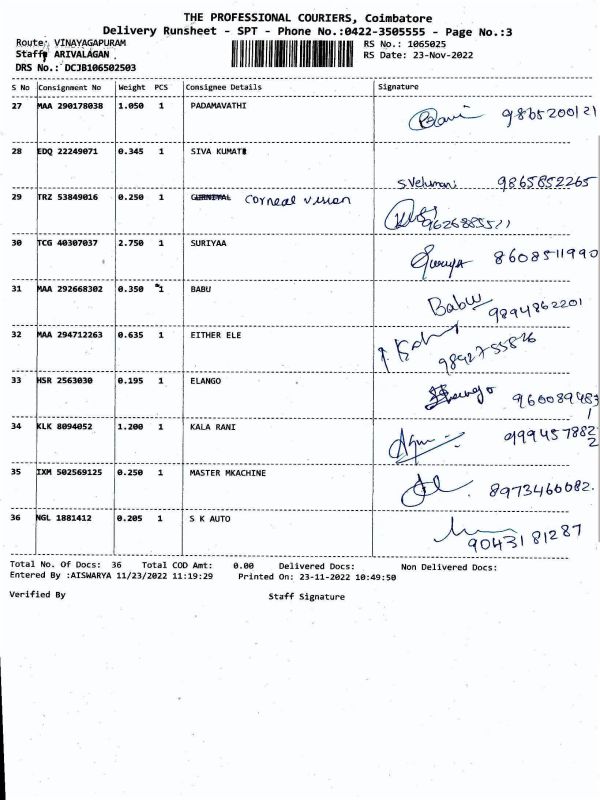 THE PROFESSIONAL COURIERS, Coimbatore
Delivery Runsheet - SPT - Phone No.:0422-3505555 - Page No.:3
Route: VINAYAGAPURAM RS No.: 1065025
Staff: ARIVALAGAN RS Date: 23-Nov-2022
DRS No.: DCJB106502503
S No Consignment No Weight PCS Consignee Details Signature
27 MAA 290178038 1.050 1 PADAMAVATHI 9865200121
28 EDQ 22249071 0.345 1 SIVA KUMAT
S.Velumani 9865852265
29 TRZ 53849016 0.250 1 corneal vision
9626885511
30 TCG 40307037 2.750 1 SURIYAA Suriya 8608511990
31 MAA 292668302 0.350 1 BABU
Babu 9894862201
32 MAA 294712263 0.635 1 EITHER ELE
9892755826
33 HSR 2563030 0.195 1 ELANGO Elango 9600894831
34 KLK 8094052 1.200 1 KALA RANI 9994578822
35 IXM 502569125 0.250 1 MASTER MKACHINE 8973460082.
36 NGL 1881412 0.205 1 S K AUTO
9043181287
Total No. Of Docs: 36 Total COD Amt: 0.00 Delivered Docs: Non Delivered Docs:
Entered By :AISWARYA 11/23/2022 11:19:29 Printed On: 23-11-2022 10:49:50
Verified By Staff Signature